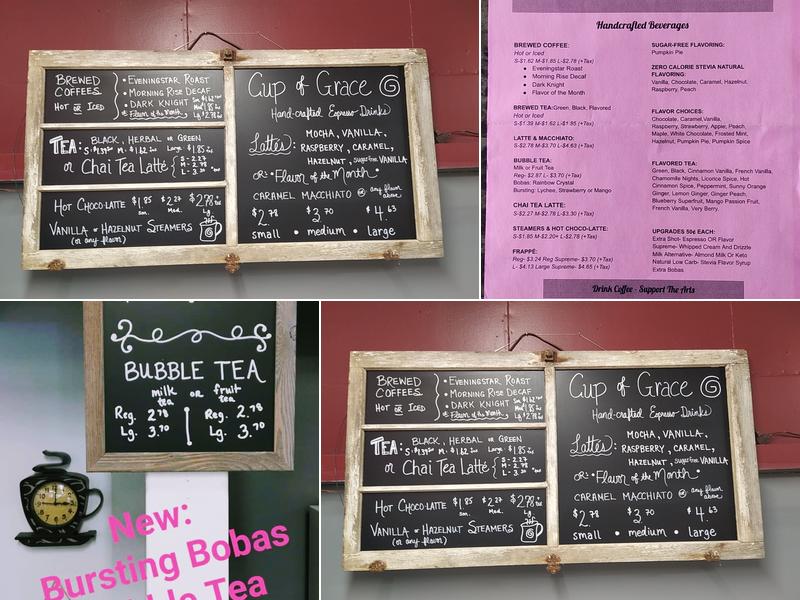 BREWED
COFFEES
HOT or ICED
• EVENINGSTAR ROAST
• MORNING RISE DECAF
• DARK KNIGHT
• Flavor of the Month
TEA: BLACK, HERBAL or GREEN
or CHAI TEA LATTÉ
S - 2.27
M - 2.78
L - 3.30
HOT CHOCOLATE $1.85 $2.27 $2.78
Sm. Med. Lg.
VANILLA or HAZELNUT STEAMERS
(or any flavor)
Cup of Grace
Hand-crafted Espresso Drinks
Lattés: MOCHA, VANILLA,
RASPBERRY, CARAMEL,
HAZELNUT, sugar free VANILLA
OR: • Flavor of the Month •
CARAMEL MACCHIATO or any flavor above
$2.78 $3.70 $4.63
small • medium • large
Handcrafted Beverages
BREWED COFFEE:
Hot or Iced
S-$1.62 M-$1.85 L-$2.78 (+Tax)
● Eveningstar Roast
● Morning Rise Decaf
● Dark Knight
● Flavor of the Month
BREWED TEA:Green, Black, Flavored
Hot or Iced
S-$1.39 M-$1.62 L-$1.85 (+Tax)
LATTE & MACCHIATO:
S-$2.78 M-$3.70 L-$4.63 (+Tax)
BUBBLE TEA:
Milk or Fruit Tea
Reg- $2.87 L- $3.70 (+Tax)
Bobas: Rainbow Crystal
Bursting: Lychee, Strawberry or Mango
CHAI TEA LATTE:
S-$2.27 M-$2.78 L-$3.30 (+Tax)
STEAMERS & HOT CHOCO-LATTE:
S-$1.85 M-$2.20+ L-$2.78 (+Tax)
FRAPPÉ:
Reg- $3.24 Reg Supreme- $3.70 (+Tax)
L- $4.13 Large Supreme- $4.65 (+Tax)
SUGAR-FREE FLAVORING:
Pumpkin Pie
ZERO CALORIE STEVIA NATURAL
FLAVORING:
Vanilla, Chocolate, Caramel, Hazelnut,
Raspberry, Peach
FLAVOR CHOICES:
Chocolate, Caramel,Vanilla,
Raspberry, Strawberry, Apple, Peach,
Maple, White Chocolate, Frosted Mint,
Hazelnut, Pumpkin Pie, Pumpkin Spice
FLAVORED TEA:
Green, Black, Cinnamon Vanilla, French Vanilla,
Chamomile Nights, Licorice Spice, Hot
Cinnamon Spice, Peppermint, Sunny Orange
Ginger, Lemon Ginger, Ginger Peach,
Blueberry Superfruit, Mango Passion Fruit,
French Vanilla, Very Berry.
UPGRADES 50¢ EACH:
Extra Shot- Espresso OR Flavor
Supreme- Whipped Cream And Drizzle
Milk Alternative- Almond Milk Or Keto
Natural Low Carb- Stevia Flavor Syrup
Extra Bobas
Drink Coffee - Support The Arts
BUBBLE TEA
milk tea or fruit tea
Reg. 2.78 Reg. 2.78
Lg. 3.70 Lg. 3.70
New:
Bursting Bobas
Tea
BREWED
COFFEES
HOT or ICED
• EVENINGSTAR ROAST
• MORNING RISE DECAF
• DARK KNIGHT
• Flavor of the Month
TEA: BLACK, HERBAL or GREEN
or CHAI TEA LATTÉ
S - 2.27
M - 2.78
L - 3.30
HOT CHOCOLATE $1.85 $2.27 $2.78
Sm. Med. Lg.
VANILLA or HAZELNUT STEAMERS
(or any flavor)
Cup of Grace
Hand-crafted Espresso Drinks
Lattés: MOCHA, VANILLA,
RASPBERRY, CARAMEL,
HAZELNUT, sugar free VANILLA
OR: • Flavor of the Month •
CARAMEL MACCHIATO or any flavor above
$2.78 $3.70 $4.63
small • medium • large